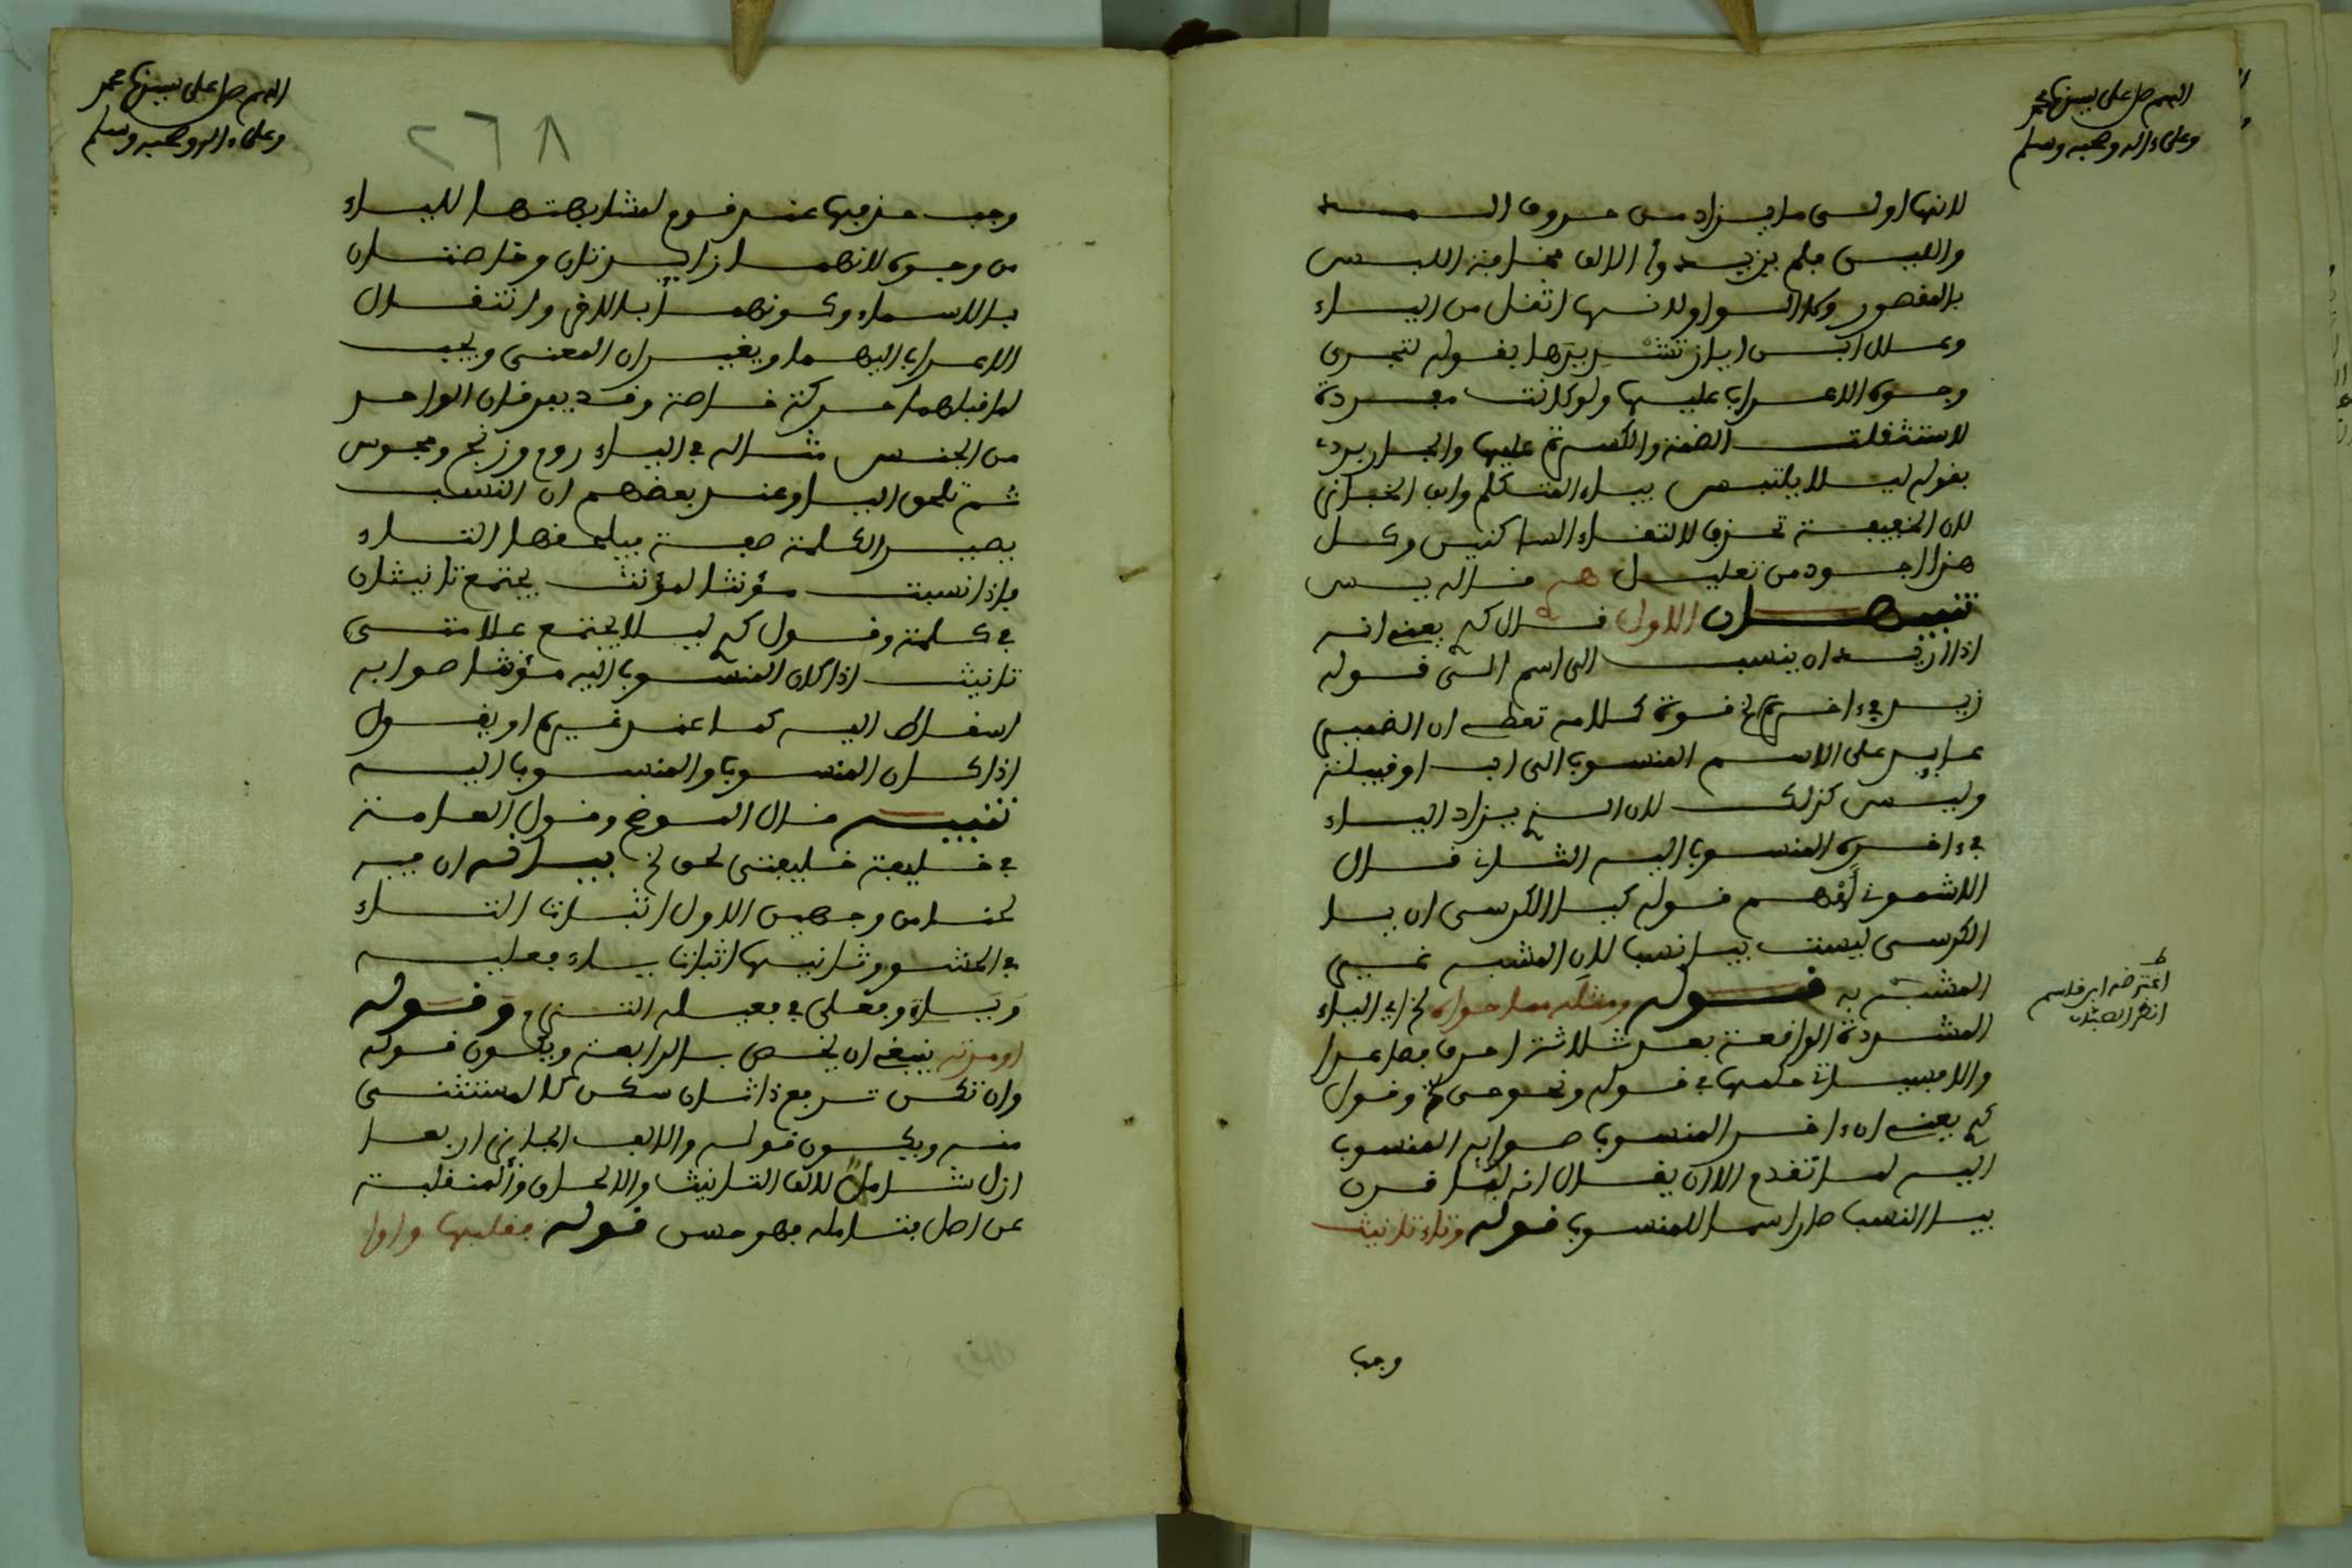 اللهم صل على سيدنا محمد
وعلى ءاله وصحبه وسلم
لانها اولى ما يزاد من حروف المد
واللين فلم يزيدوا الالف مخافة اللبس
بالمقصور وكذا الواو ولانها اثقل من الياء
وعلل ابن اياز تشديدها بقوله لتجرى
وجوه الاعراب عليها ولو كانت مفردة
لاستثقلت الضمة والكسرة عليها والجاربردى
بقوله ليلا يلتبس بياء المتكلم وايضا
لان الخفيفة تحذف لالتقاء الساكنين وكل
هذا اجود من تعليل قاله يس
تنبيهان الاول قال يعنى انه
اذا ازيد ان ينسب الى اسم الى قوله
زيد فى ءاخره الخ قوة كلامه تعطى ان الضمير
عايد على الاسم المنسوب الى اب او قبيلة
وليس كذلك لان الذى يزاد الياء
فى ءاخره المنسوب اليه الثانى قال
الاشمونى افهم قوله كيا الكرسى ان يا
الكرسى ليست بيا نسب لان المشبه غير
المشبه به قوله ومثله مما حواه الخ اى الياء
المشددة الواقعة بعد ثلاثة احرف فصاعدا
والا فسياتى حكمها فى قوله ونحو حى الخ وقول
يعنى ان ءاخر المنسوب صوابه المنسوب
اليه لما تقدم الا ان يقال انه لما قرن
بيا النسب صار اسما للمنسوب قوله وتاء تانيث
اعترضه ابن قاسم
انظر الصبان
وجب
اللهم صل على سيدنا محمد
وعلى ءاله وصحبه وسلم
٢٦٨
وجب حذفها عند قوم لمشابهتها للياء
من وجوه لانهما زايدتان وخاصتان
بالاسماء وكونهما بالاخر وانتقال
الاعراب اليهما ويغيران المعنى ويجب
لما قبلهما حركة خاصة وقد يفرقان الواحد
من الجنس مثاله فى الياء روم وزنج ومجوس
ثم تلحق اليا وعند بعضهم ان النسب
يصير الكلمة صفة فيلحقها التاء
فاذا نسبت مؤنثا لمؤنث يجتمع تانيثان
فى كلمة وقول ليلا يجتمع علامتى
تانيث اذا كان المنسوب اليه مؤنثا صوابه
اسقاط اليه كما عند غيره او يقول
اذا كان المنسوب والمنسوب اليه
تنبيه قال الموضح وقول العامة
فى خليفة خليفتى لحن الخ بيانه ان فيه
لحنا من وجهين الاول اثبات التاء
فى الحشو وثانيها اثبات ياء فعليه
وياؤه وفعلى فى فعيلة التزم وقوله
او مدته ينبغى ان يخص بالرابعة ويكون قوله
وان تكن تربع ذا ثان سكن كالمستثنى
منه ويكون قوله والالف الجائز اربعا
ازل شاملا لالف التانيث والالحاق والمنقلبة
عن اصل فتامله فهو حسن قوله فقلبها واوا